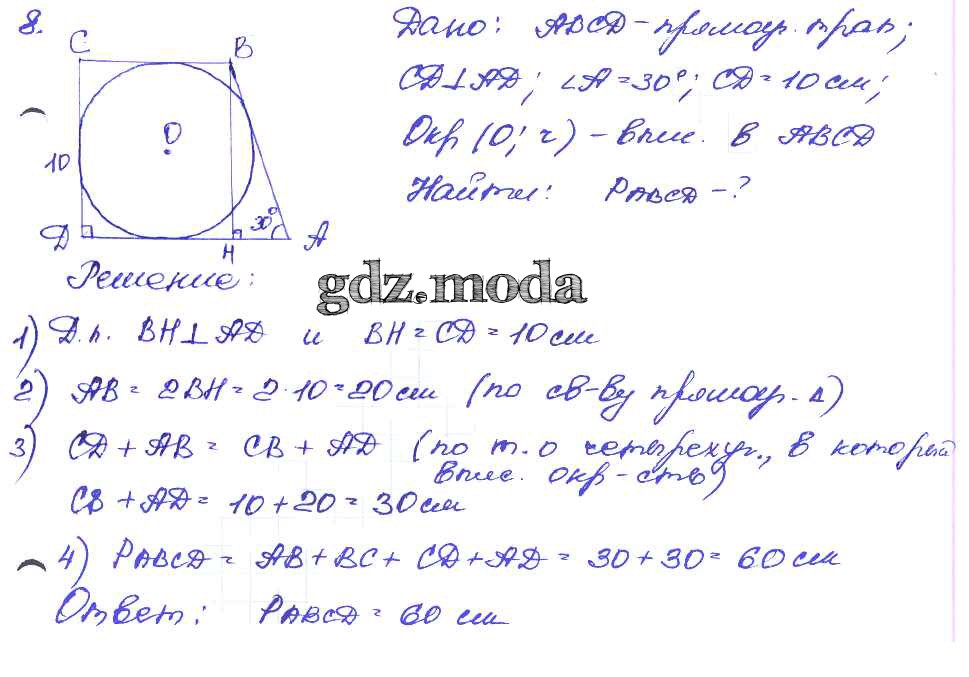 8.
Дано: ABCD – прямоуг. трап;
CD⊥AD; ∠A = 30°; CD = 10 см;
Окр (O; r) – впис. в ABCD
Найти: PABCD – ?
C B
O
10
30°
D H A
Решение:
gdz.moda
1) Д.п. BH⊥AD и BH = CD = 10 см
2) AB = 2BH = 2·10 = 20 см (по св-ву прямоуг. Δ)
3) CD + AB = CB + AD (по т. о четырехуг., в который
впис. окр-сть)
CB + AD = 10 + 20 = 30 см
4) PABCD = AB + BC + CD + AD = 30 + 30 = 60 см
Ответ: PABCD = 60 см